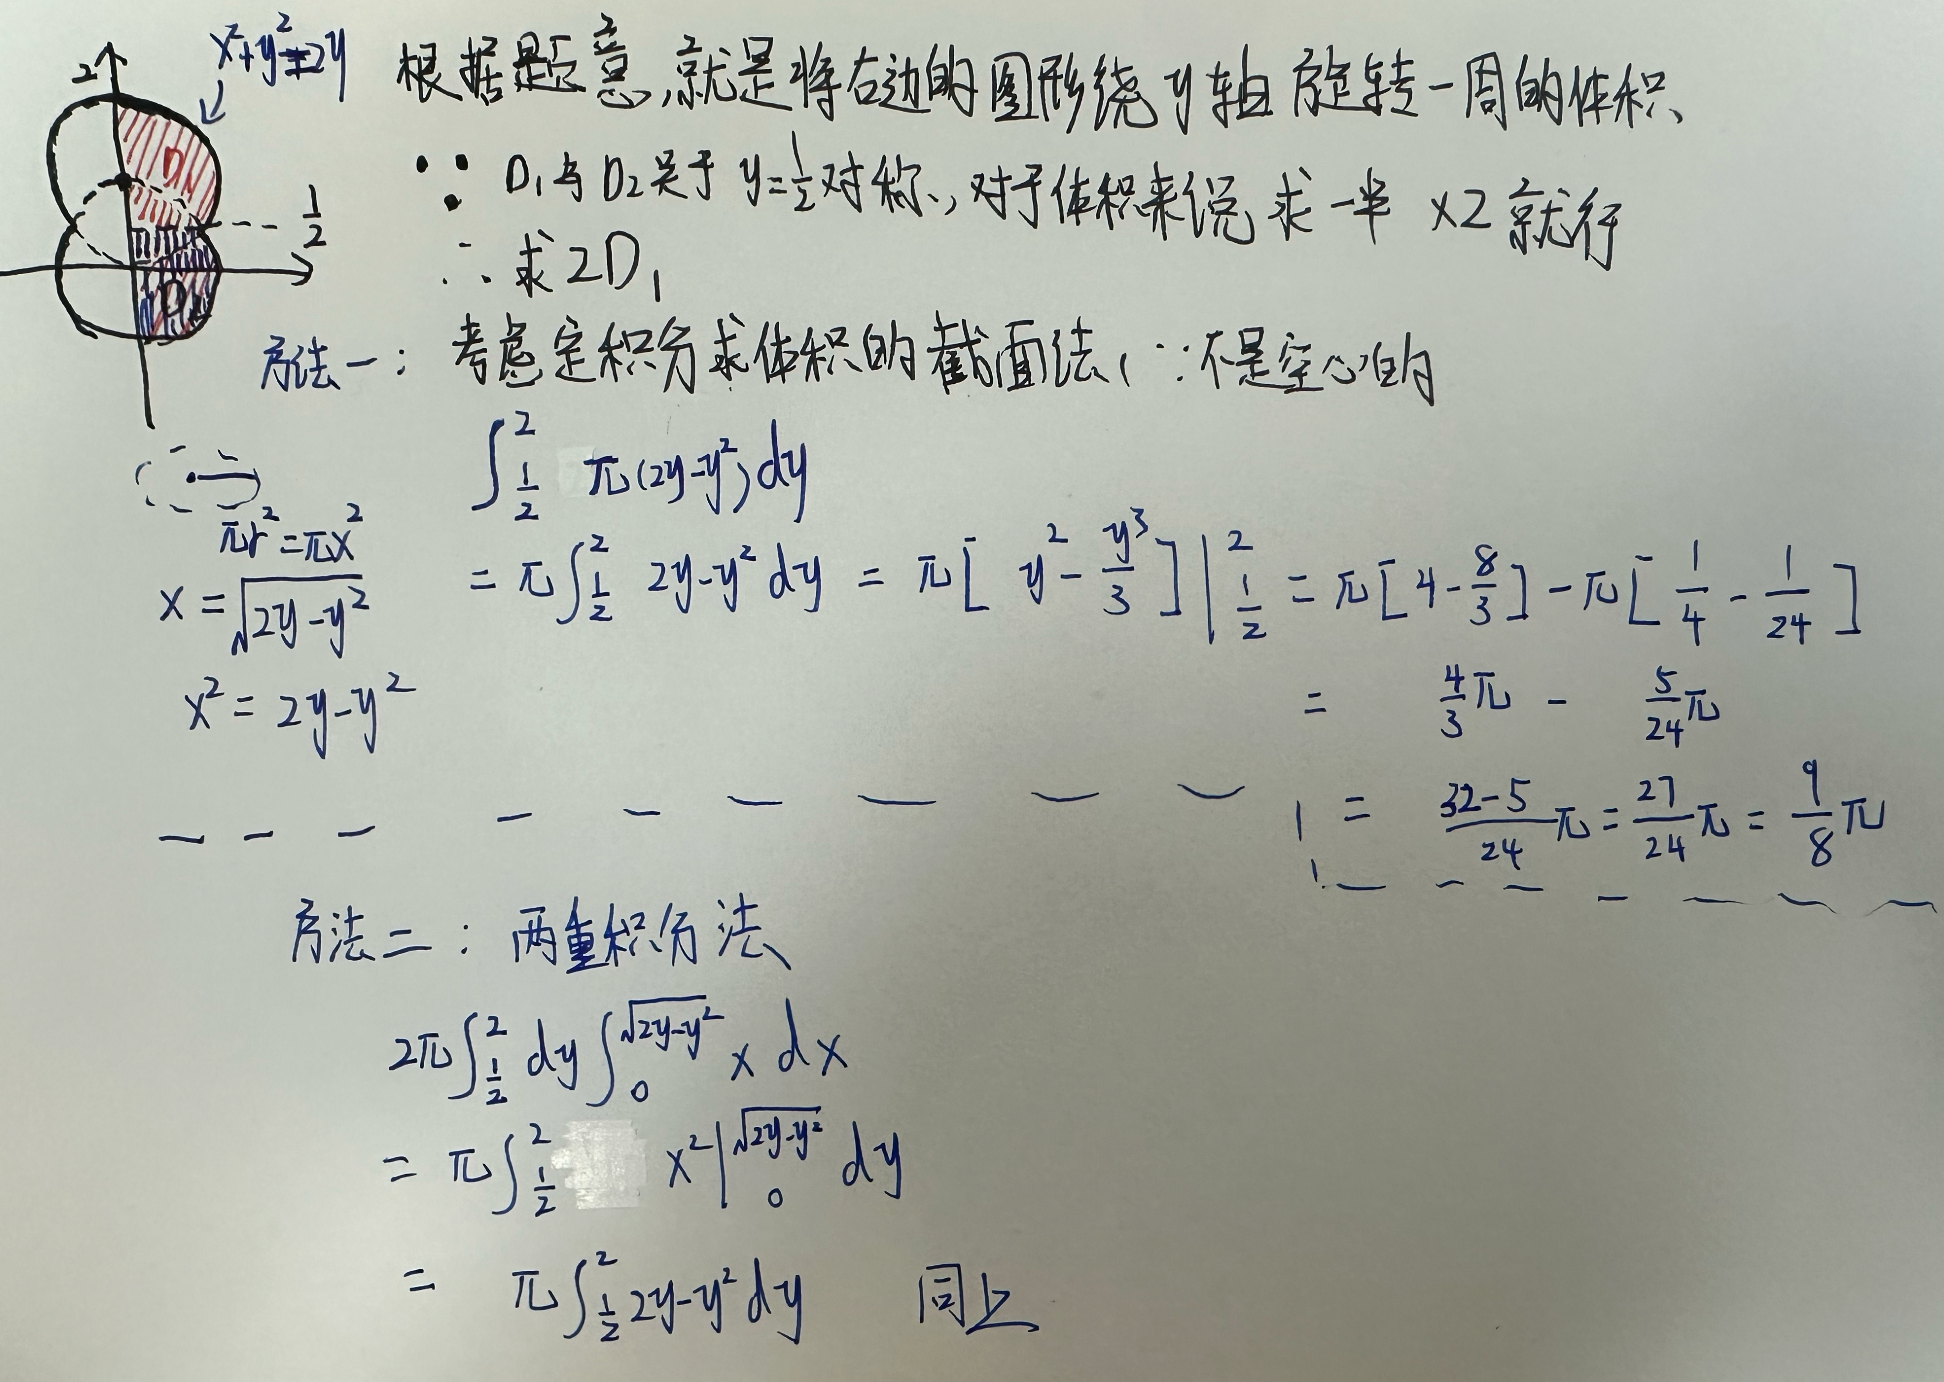 x²+y²=2y
2
根据题意,就是将右边的图形绕y轴旋转一周的体积、
D₁
1/2
∵ D₁与D₂关于 y=1/2对称、,对于体积来说,求一半 ×2就行
∴ 求2D₁
方法一: 考虑定积分求体积的截面法, ∵不是空心的
∫_{1/2}^{2} π(2y-y²)dy
πr²=πx²
x=√(2y-y²)
x²=2y-y²
= π∫_{1/2}^{2} 2y-y² dy = π[y²-y³/3]|_{1/2}^{2} = π[4-8/3]-π[1/4-1/24]
= 4/3π - 5/24π
= (32-5)/24π = 27/24π = 9/8π
方法二: 两重积分法
2π∫_{1/2}^{2} dy∫_{0}^{√(2y-y²)} x dx
= π∫_{1/2}^{2} x²|_{0}^{√(2y-y²)} dy
= π∫_{1/2}^{2} 2y-y² dy 同上